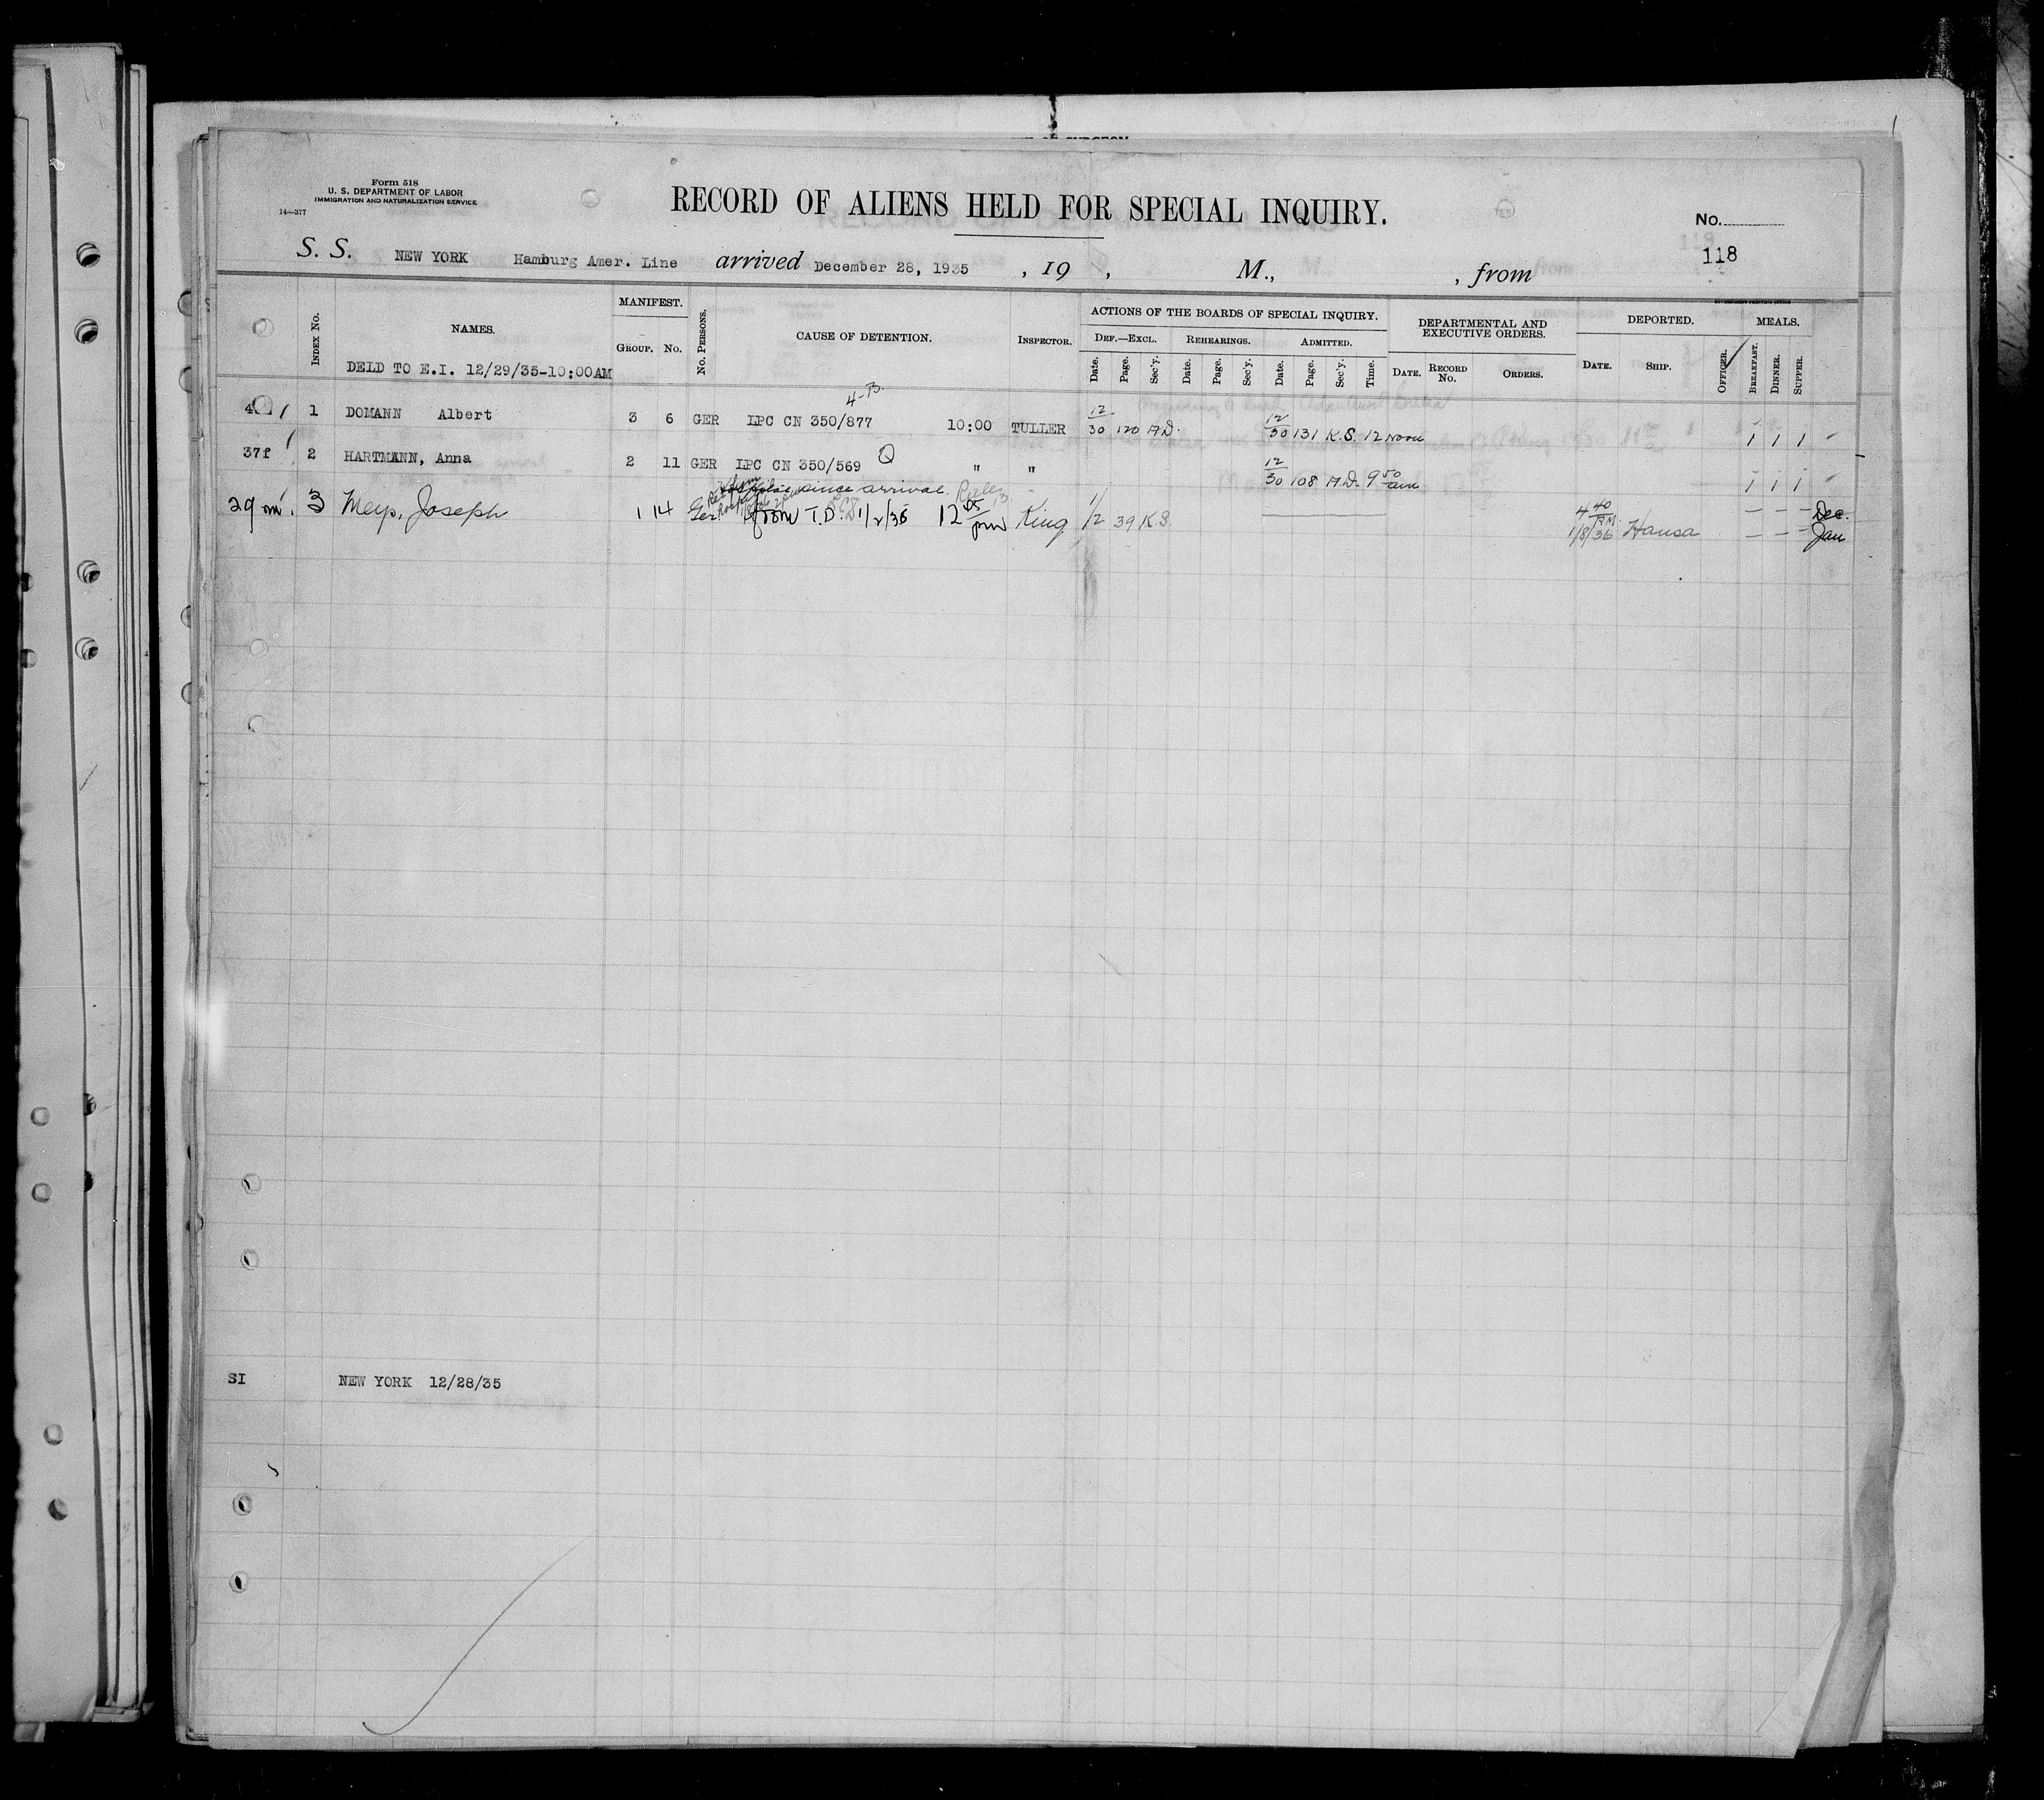 Form 518
U. S. DEPARTMENT OF LABOR
IMMIGRATION AND NATURALIZATION SERVICE
14—377
RECORD OF ALIENS HELD FOR SPECIAL INQUIRY.
No.
118
S. S. NEW YORK Hamburg Amer. Line arrived December 28, 1935 , 19 , M., , from
INDEX No. NAMES. MANIFEST. No. PERSONS. CAUSE OF DETENTION. INSPECTOR. ACTIONS OF THE BOARDS OF SPECIAL INQUIRY. DEPARTMENTAL AND EXECUTIVE ORDERS. DEPORTED. MEALS.
GROUP. No. DEF.—EXCL. REHEARINGS. ADMITTED.
Date. Page. Sec'y. Date. Page. Sec'y. Date. Page. Sec'y. Time. DATE. RECORD No. ORDERS. DATE. SHIP. OFFICER. BREAKFAST. DINNER. SUPPER.
DELD TO E.I. 12/29/35-10:00AM
4-B.
1 DOMANN Albert 3 6 GER LPC CN 350/877 10:00 TULLER 12/30 120 A.D. 12/30 131 K.S. 12 noon 1 1 1
37f 2 HARTMANN, Anna 2 11 GER LPC CN 350/569 Q " " 12/30 108 A.D. 9 50 am 1 1 1
since arrival.
29m 3 Meys, Joseph 1 14 Ger. from T.D. 1/2/36 12 05 pm King 1/2 39 K.S. 4 40 P.M. 1/8/36 Hansa — — — Dec.
— — — Jan
SI NEW YORK 12/28/35